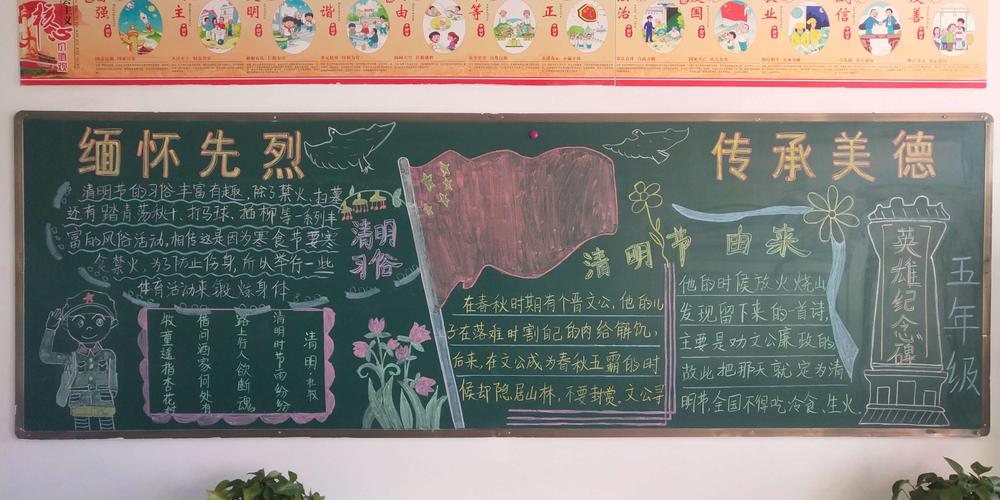 核心
价值观
强
主
明
谐
由
等
正
治
国
业
信
善
缅怀先烈
传承美德
清明节的习俗丰富有趣,除了禁火、扫墓
还有踏青荡秋千、打马球、插柳等一系列丰
富的风俗活动,相传这是因为寒食节要寒
食禁火,为了防止伤身,所以举行一些
体育活动来锻炼身体
清明
习俗
清明·杜牧
清明时节雨纷纷
路上行人欲断魂
借问酒家何处有
牧童遥指杏花村
清明节 由来
在春秋时期有个晋文公,他的儿
子在落难时割自己的肉给解饥,
后来,在文公成为春秋五霸的时
候却隐居山林,不要封赏。文公寻
他的时候放火烧山
发现留下来的一首诗,
主要是劝文公廉政的
故此把那天就定为清
明节,全国不得吃冷食、生火。
英雄纪念碑
五年级